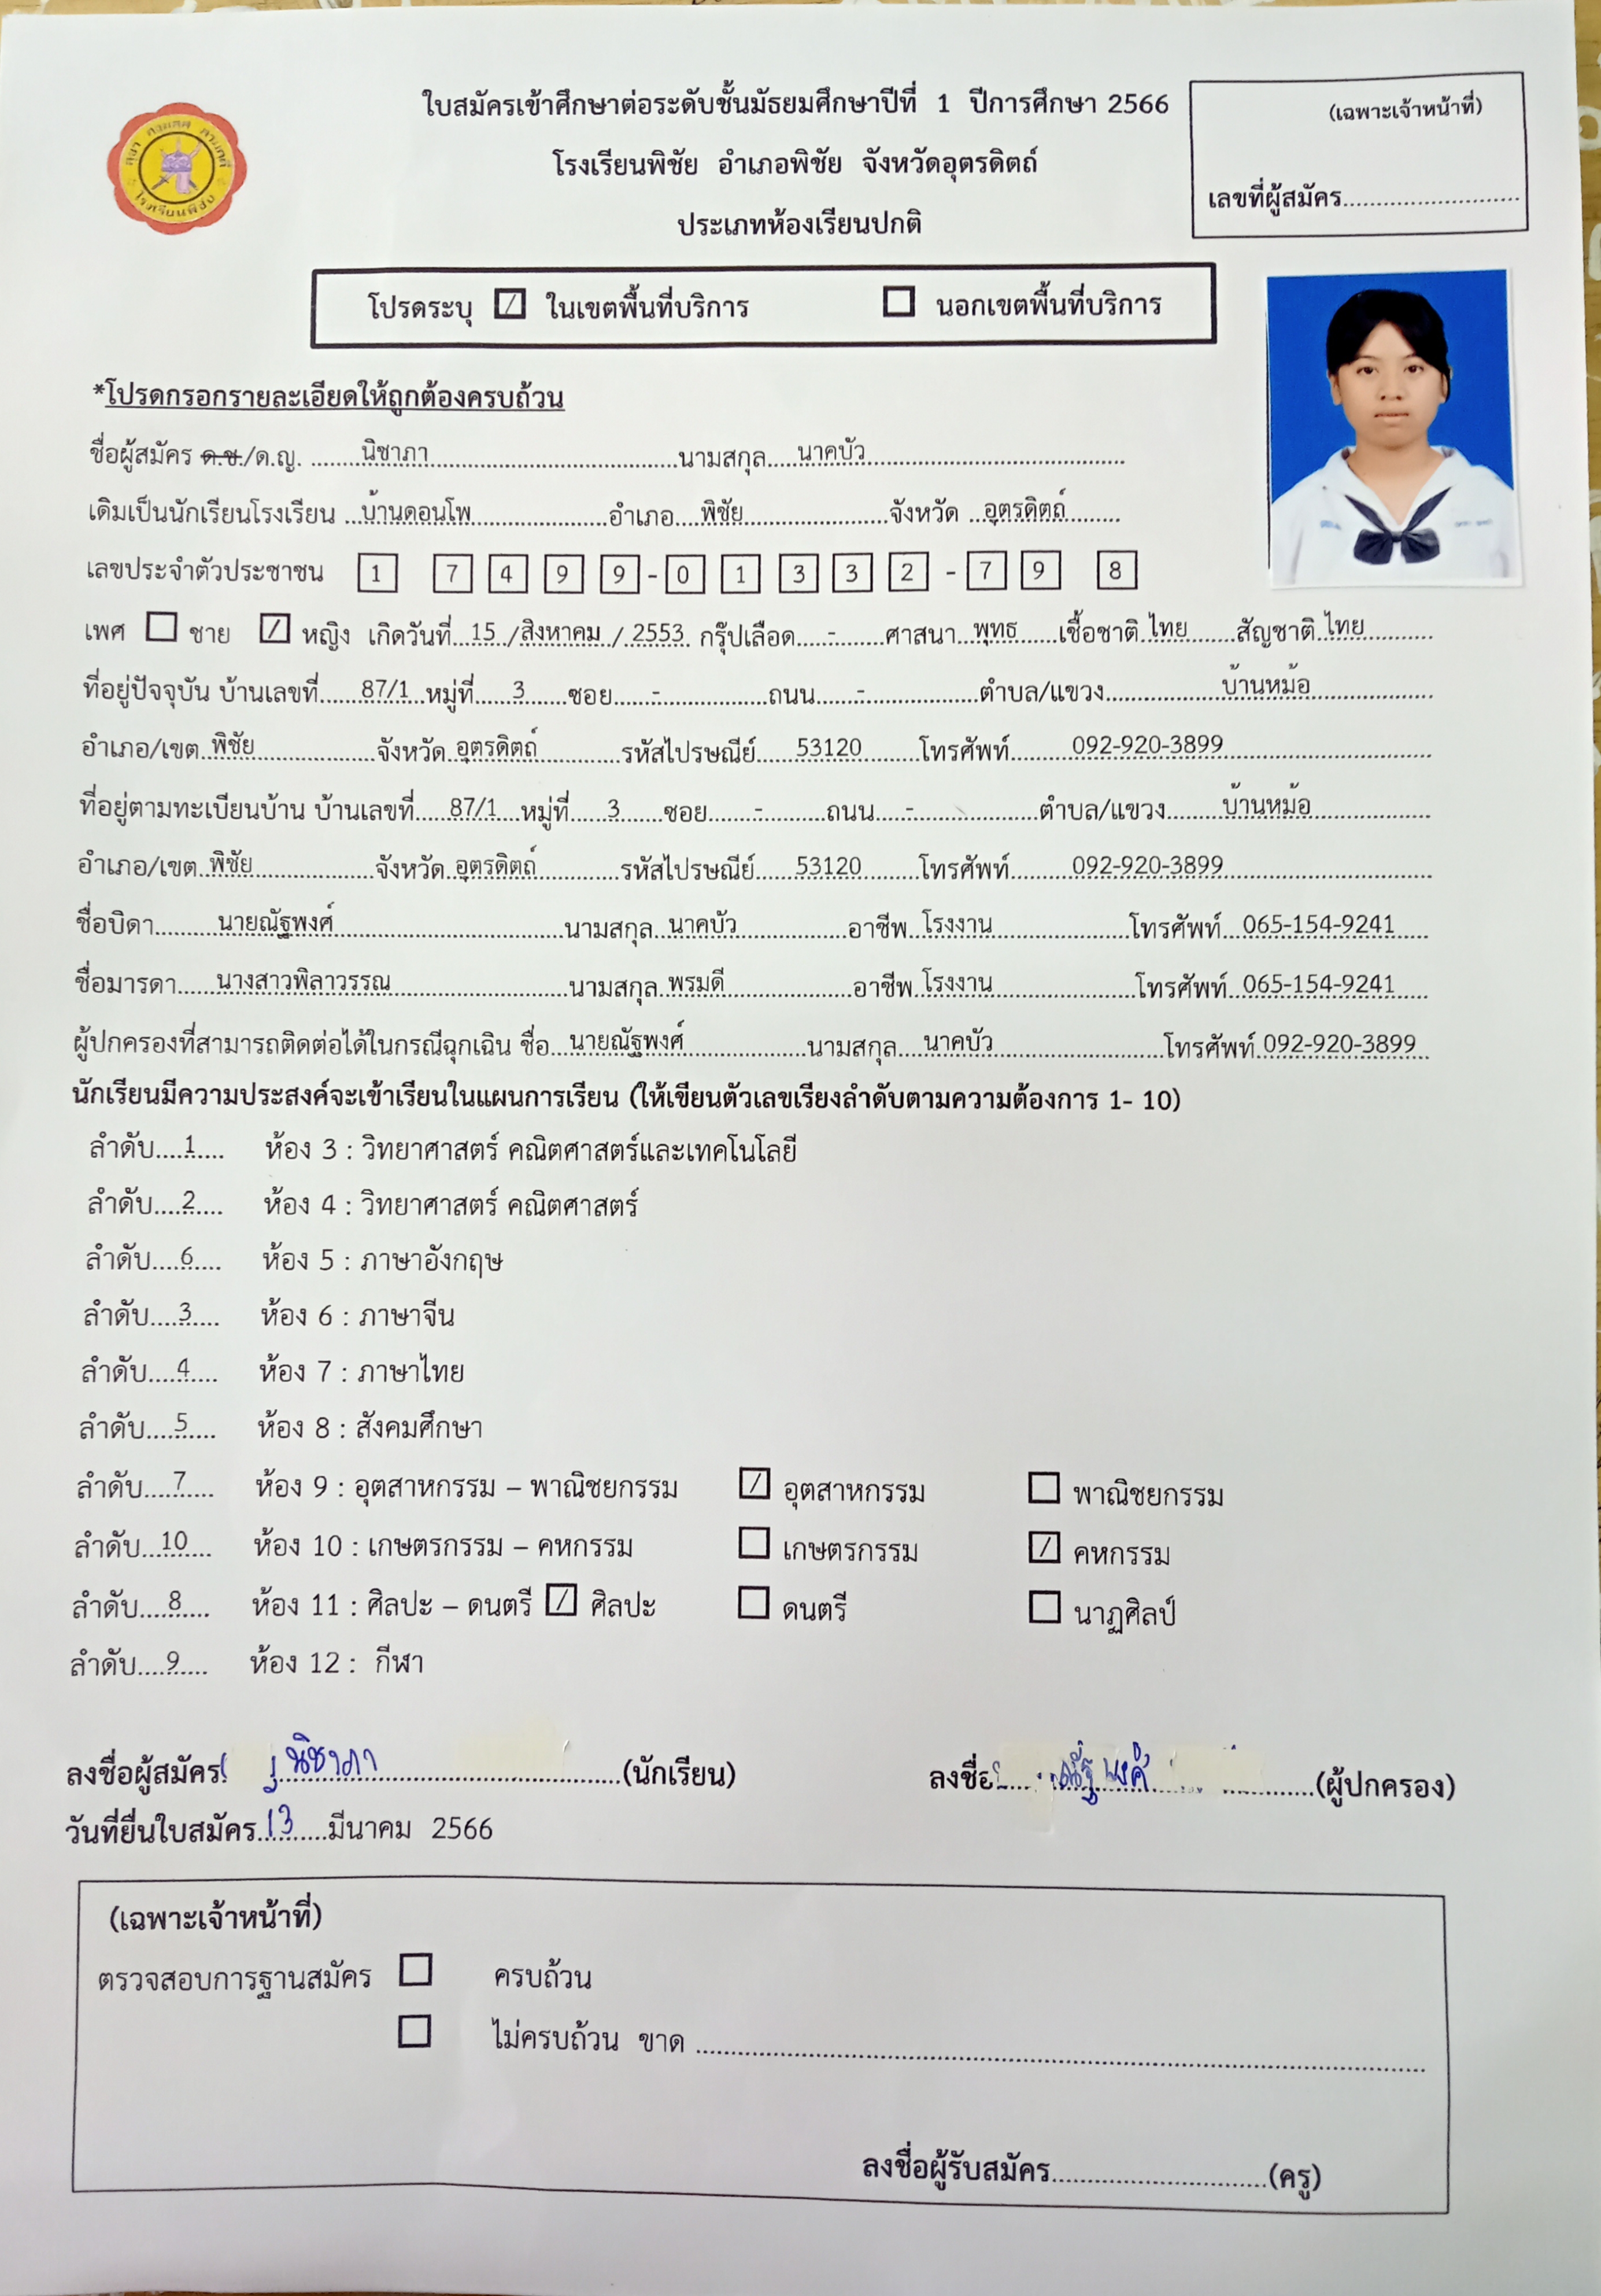 ใบสมัครเข้าศึกษาต่อระดับชั้นมัธยมศึกษาปีที่ 1 ปีการศึกษา 2566
(เฉพาะเจ้าหน้าที่)
โรงเรียนพิชัย อำเภอพิชัย จังหวัดอุตรดิตถ์
เลขที่ผู้สมัคร
ประเภทห้องเรียนปกติ
โรงเรียนพิชัย
โปรดระบุ ☑ ในเขตพื้นที่บริการ ☐ นอกเขตพื้นที่บริการ
*โปรดกรอกรายละเอียดให้ถูกต้องครบถ้วน
ชื่อผู้สมัคร ด.ช./ด.ญ. นิชาภา นามสกุล นาคบัว
เดิมเป็นนักเรียนโรงเรียน บ้านดอนโพ อำเภอ พิชัย จังหวัด อุตรดิตถ์
เลขประจำตัวประชาชน 1 7 4 9 9 - 0 1 3 3 2 - 7 9 8
เพศ ☐ ชาย ☑ หญิง เกิดวันที่ 15 / สิงหาคม / 2553 กรุ๊ปเลือด - ศาสนา พุทธ เชื้อชาติ ไทย สัญชาติ ไทย
ที่อยู่ปัจจุบัน บ้านเลขที่ 87/1 หมู่ที่ 3 ซอย - ถนน - ตำบล/แขวง บ้านหม้อ
อำเภอ/เขต พิชัย จังหวัด อุตรดิตถ์ รหัสไปรษณีย์ 53120 โทรศัพท์ 092-920-3899
ที่อยู่ตามทะเบียนบ้าน บ้านเลขที่ 87/1 หมู่ที่ 3 ซอย - ถนน - ตำบล/แขวง บ้านหม้อ
อำเภอ/เขต พิชัย จังหวัด อุตรดิตถ์ รหัสไปรษณีย์ 53120 โทรศัพท์ 092-920-3899
ชื่อบิดา นายณัฐพงศ์ นามสกุล นาคบัว อาชีพ โรงงาน โทรศัพท์ 065-154-9241
ชื่อมารดา นางสาวพิลาวรรณ นามสกุล พรมดี อาชีพ โรงงาน โทรศัพท์ 065-154-9241
ผู้ปกครองที่สามารถติดต่อได้ในกรณีฉุกเฉิน ชื่อ นายณัฐพงศ์ นามสกุล นาคบัว โทรศัพท์ 092-920-3899
นักเรียนมีความประสงค์จะเข้าเรียนในแผนการเรียน (ให้เขียนตัวเลขเรียงลำดับตามความต้องการ 1- 10)
ลำดับ 1 ห้อง 3 : วิทยาศาสตร์ คณิตศาสตร์และเทคโนโลยี
ลำดับ 2 ห้อง 4 : วิทยาศาสตร์ คณิตศาสตร์
ลำดับ 6 ห้อง 5 : ภาษาอังกฤษ
ลำดับ 3 ห้อง 6 : ภาษาจีน
ลำดับ 4 ห้อง 7 : ภาษาไทย
ลำดับ 5 ห้อง 8 : สังคมศึกษา
ลำดับ 7 ห้อง 9 : อุตสาหกรรม – พาณิชยกรรม ☑ อุตสาหกรรม ☐ พาณิชยกรรม
ลำดับ 10 ห้อง 10 : เกษตรกรรม – คหกรรม ☐ เกษตรกรรม ☑ คหกรรม
ลำดับ 8 ห้อง 11 : ศิลปะ – ดนตรี ☑ ศิลปะ ☐ ดนตรี ☐ นาฏศิลป์
ลำดับ 9 ห้อง 12 : กีฬา
ลงชื่อผู้สมัคร นิชาภา (นักเรียน) ลงชื่อ ณัฐพงศ์ (ผู้ปกครอง)
วันที่ยื่นใบสมัคร 13 มีนาคม 2566
(เฉพาะเจ้าหน้าที่)
ตรวจสอบการฐานสมัคร ☐ ครบถ้วน
☐ ไม่ครบถ้วน ขาด
ลงชื่อผู้รับสมัคร (ครู)